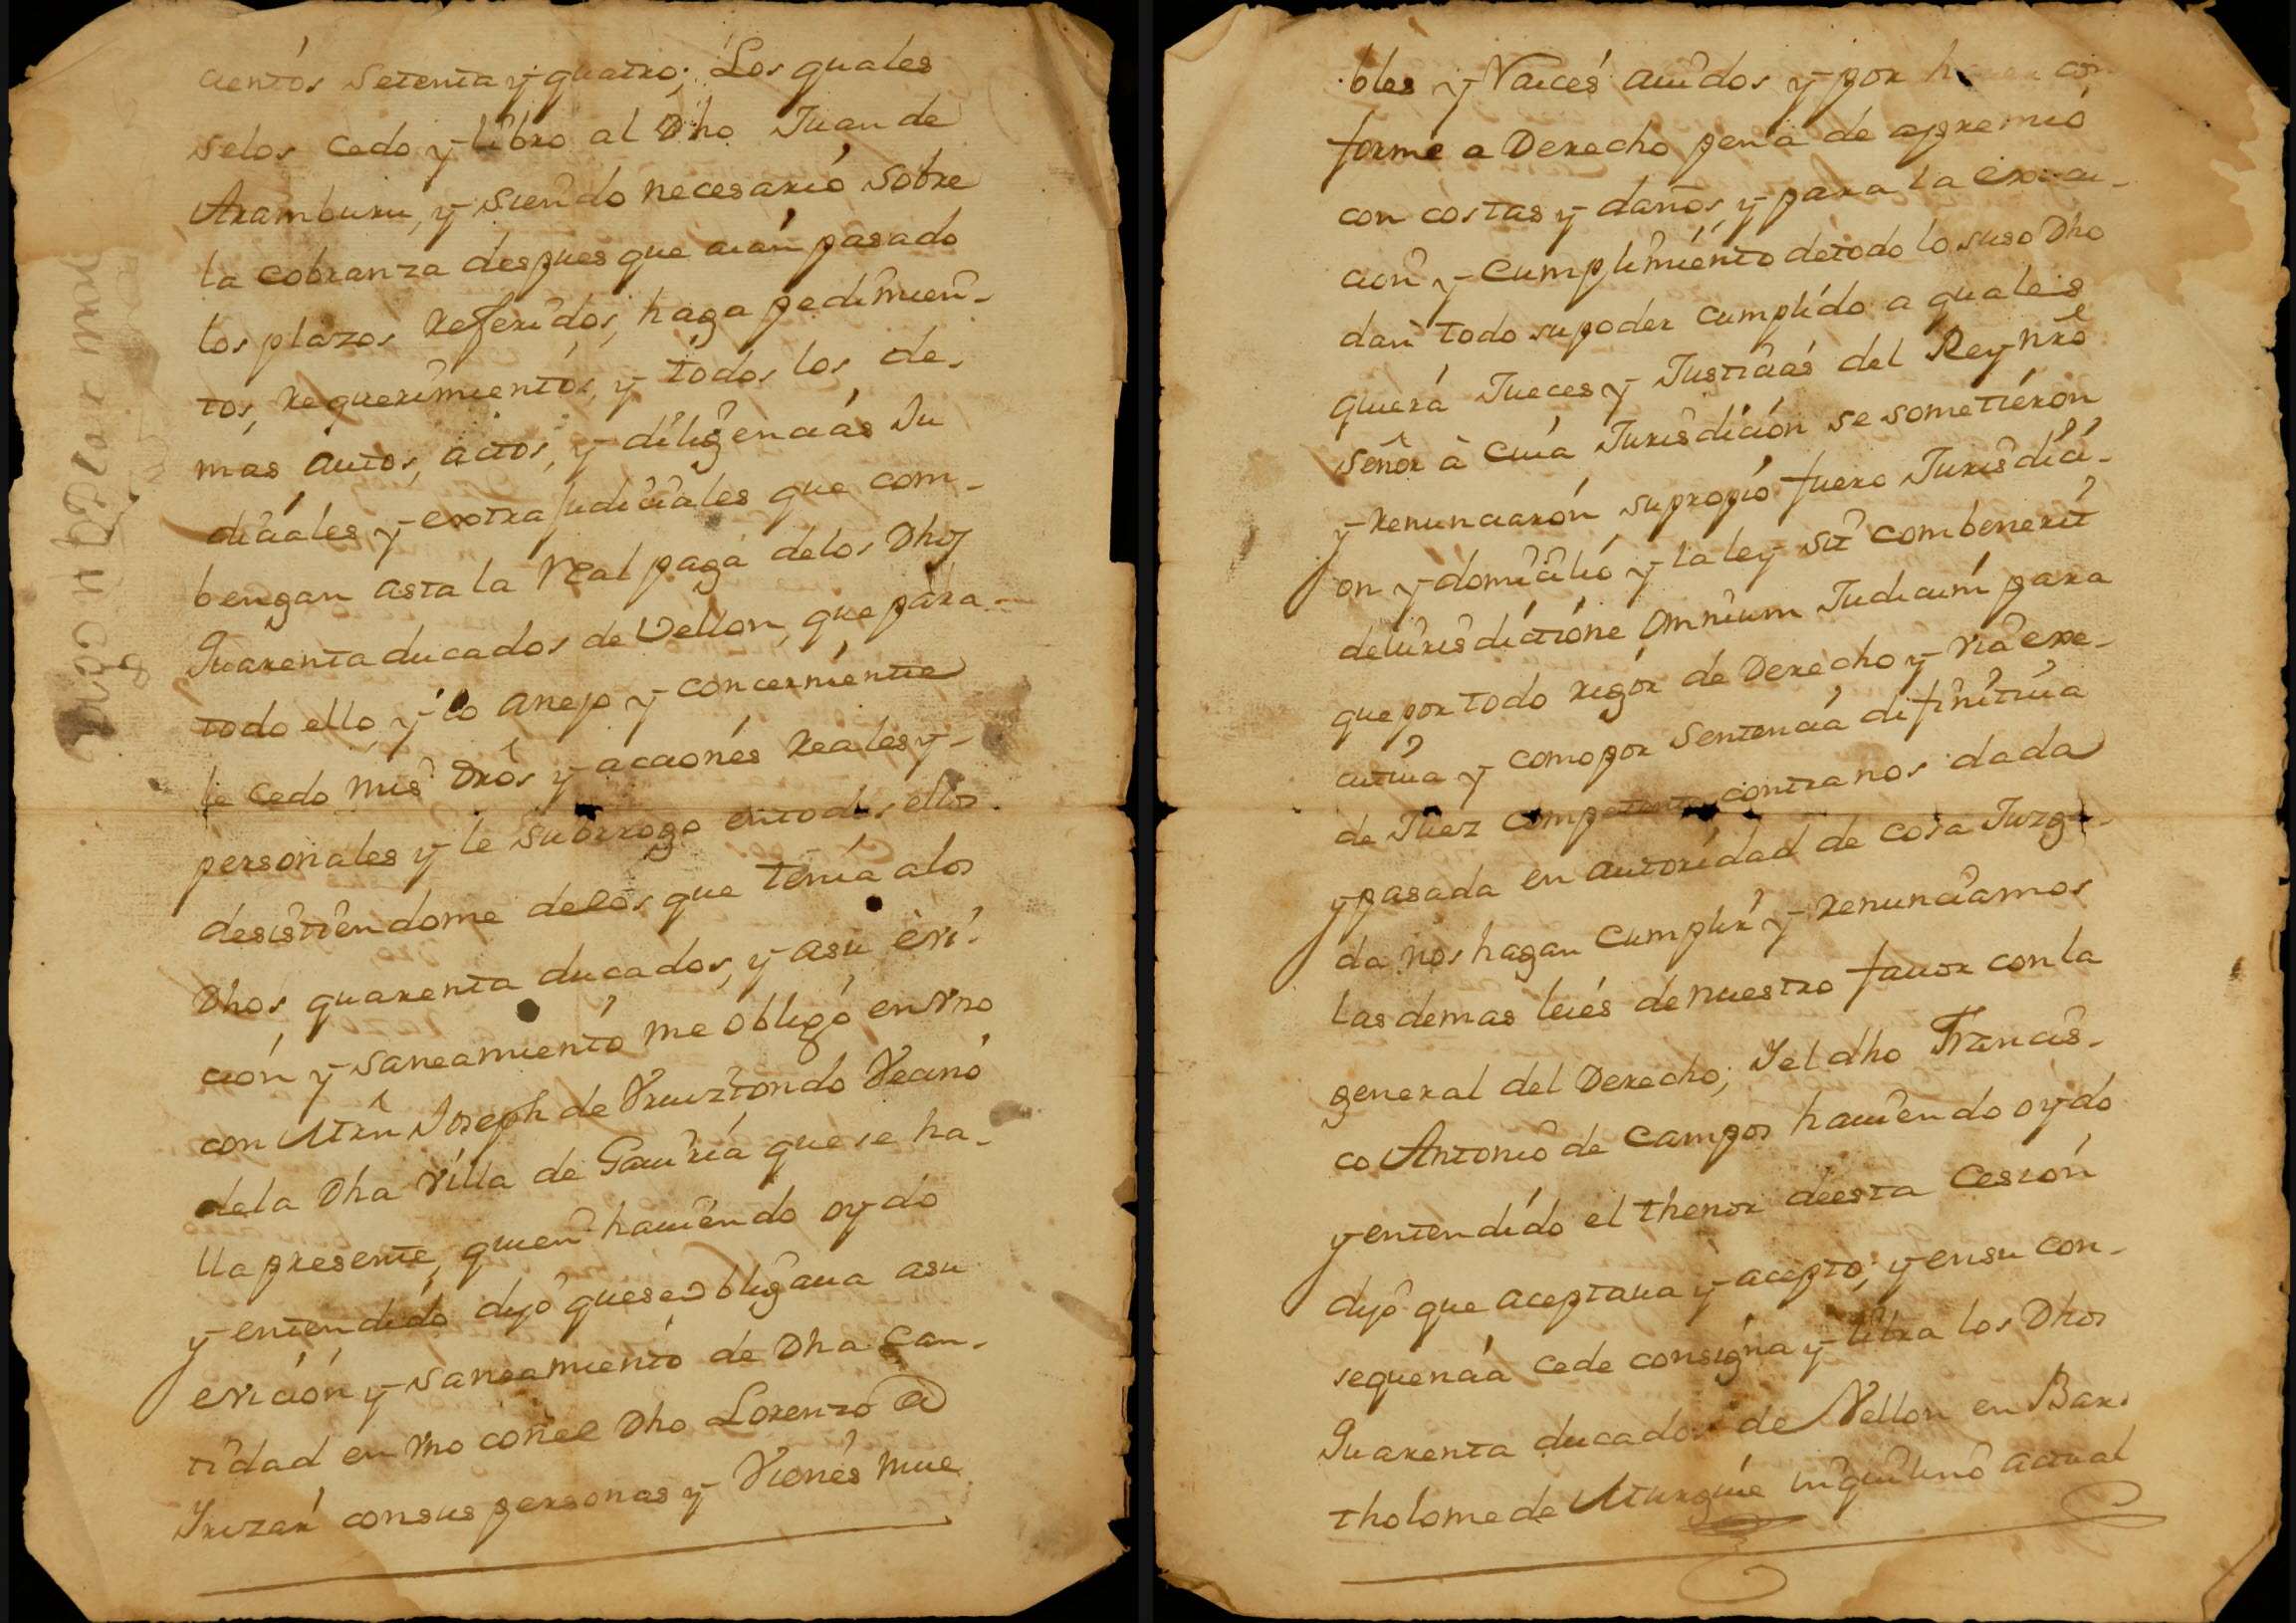 cientós Setenta y quatro; Los quales
selos Cedo y libro al Dho Juan de
Aramburu, y siendo necesarió sobre
la cobranza despues que aián pasado
los plazos Referidos, haga pedimien-
tos, Requerimientós, y todos los de-
mas autos, actos, y diligenciás Ju
diciales y extrajudiciales que com-
bengan asta la Real paga delos Dhos
Quarenta ducados de Vellon, que para
todo ello, y lo anejo y concerniente
le cedo mis Drôs y acciónes Reales y
personales y le subrrogo entodos ellos
desistiendome delos que tenía alos
Dhos quarenta ducados, y asu evi-
ción y saneamientó me obligó en Vno
con Mrñ Joseph de Vruiztondo Vecinó
dela Dha Villa de Gauiria que se ha-
lla presente, quien hauiendo oydo
y entendido dijo que se obligaua asu
evición y saneamientó de Dha Can-
tidad en Vno con el Dho Lorenzo @
Yrizar con sus personas y Vienes mue
bles y Raices auidos y por hauer con
forme a Derecho pena de apremió
con costas y daños, y para la execu-
ción y Cumplimiento detodo lo suso Dho
dan todo supoder cumplido a quales
quierá Jueces y Justiciás del Rey nrô
Señor à Cuiá Jurisdición se sometierón
y Renunciarón su propió fuero Jurisdici-
on y domicilió y la ley sit combenerit
deIurisdictióne Omnium Judicum para
que por todo rigór de Derecho y Via exe-
cutiua y como por Sentenciá difinitiua
de Juez competente contra nos dada
y pasada en autoridad de cosa Juzga-
da nos hagan Cumplir y Renunciamos
las demas leiés de nuestro fauor con la
general del Derecho; Y el dho Francis-
co Antonió de Campos hauiendo oydo
y entendido el thenor deesta Cesión
dijó que aceptaua y aceptó; y ensu con-
sequenciá Cede consigna y libra los Dhos
Quarenta ducados de Vellon en Bar-
tholome de Murguia inquilinó actual